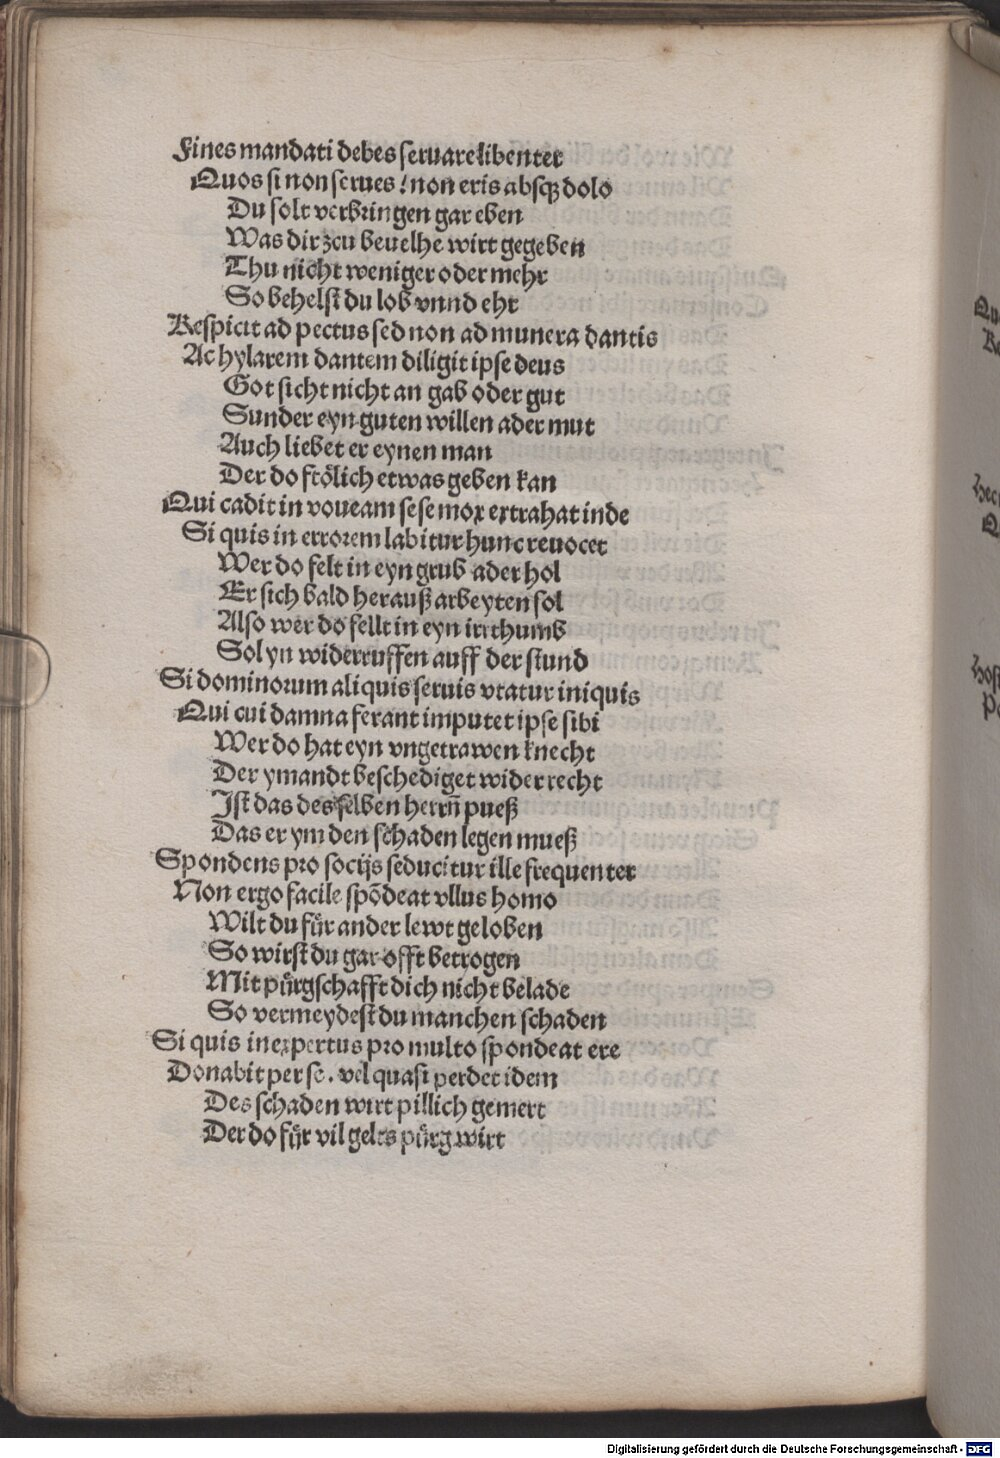 Fines mandati debes seruare libenter
Quos si non serues / non eris absqꝫ dolo
Du solt verbringen gar eben
Was dir zcu beuelhe wirt gegeben
Thu nicht weniger oder mehr
So behelst du lob vnnd ehr
Respicit ad pectus sed non ad munera dantis
Ac hylarem dantem diligit ipse deus
Got sicht nicht an gab oder gut
Sunder eyn guten willen ader mut
Auch liebet er eynen man
Der do frölich etwas geben kan
Qui cadit in voueam sese mox extrahat inde
Si quis in errorem labitur hunc reuocet
Wer do felt in eyn grub ader hol
Er sich bald herauß arbeyten sol
Also wer do fellt in eyn irrthumb
Sol yn widerruffen auff der stund
Si dominorum aliquis seruis vtatur iniquis
Qui cui damna ferant imputet ipse sibi
Wer do hat eyn vngetrawen knecht
Der ymandt beschediget wider recht
Ist das desselben herrn̄ pueß
Das er ym den schaden legen mueß
Spondens pro socijs seducitur ille frequenter
Non ergo facile spōdeat vllus homo
Wilt du für ander lewt geloben
So wirst du gar offt betrogen
Mit pürgschafft dich nicht belade
So vermeydest du manchen schaden
Si quis inexpertus pro multo spondeat ere
Donabit per se . vel quasi perdet idem
Des schaden wirt pillich gemert
Der do für vil gelts pürg wirt
Digitalisierung gefördert durch die Deutsche Forschungsgemeinschaft - DFG